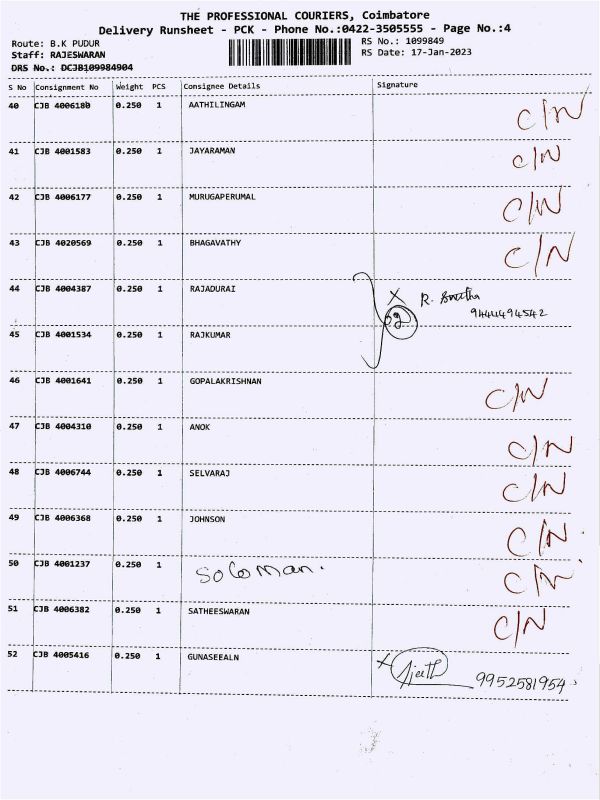 THE PROFESSIONAL COURIERS, Coimbatore
Delivery Runsheet - PCK - Phone No.:0422-3505555 - Page No.:4
Route: B.K PUDUR
RS No.: 1099849
Staff: RAJESWARAN
RS Date: 17-Jan-2023
DRS No.: DCJB109984904
S No Consignment No Weight PCS Consignee Details Signature
40 CJB 4006180 0.250 1 AATHILINGAM C/N
41 CJB 4001583 0.250 1 JAYARAMAN C/N
42 CJB 4006177 0.250 1 MURUGAPERUMAL C/N
43 CJB 4020569 0.250 1 BHAGAVATHY C/N
44 CJB 4004387 0.250 1 RAJADURAI X R.
9444494542
45 CJB 4001534 0.250 1 RAJKUMAR
46 CJB 4001641 0.250 1 GOPALAKRISHNAN C/N
47 CJB 4004310 0.250 1 ANOK C/N
48 CJB 4006744 0.250 1 SELVARAJ C/N
49 CJB 4006368 0.250 1 JOHNSON C/N
50 CJB 4001237 0.250 1 Soloman. C/N
51 CJB 4006382 0.250 1 SATHEESWARAN C/N
52 CJB 4005416 0.250 1 GUNASEEALN X Ajeeth 9952581954